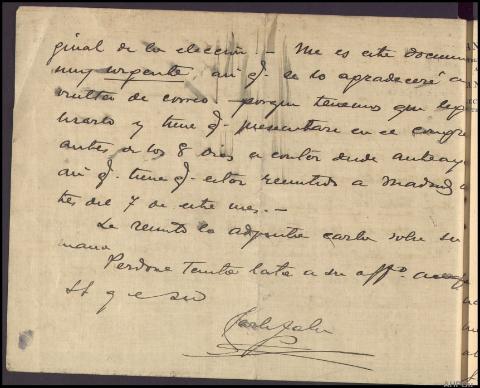 ginal de la elección.- Me es este documen
muy urgente, así q. se lo agradeceré a
vuelta de correo porque tenemos que leg
lizarlo y tiene q. presentarse en el Congre
antes de los 8 dias a contar desde anteay
así q. tiene q. estar remitido a Madrid a
tes del 7 de este mes.-
Le remito la adjunta carta sobre su
mano
Perdone tanta lata a su affº. amigo
q e s m